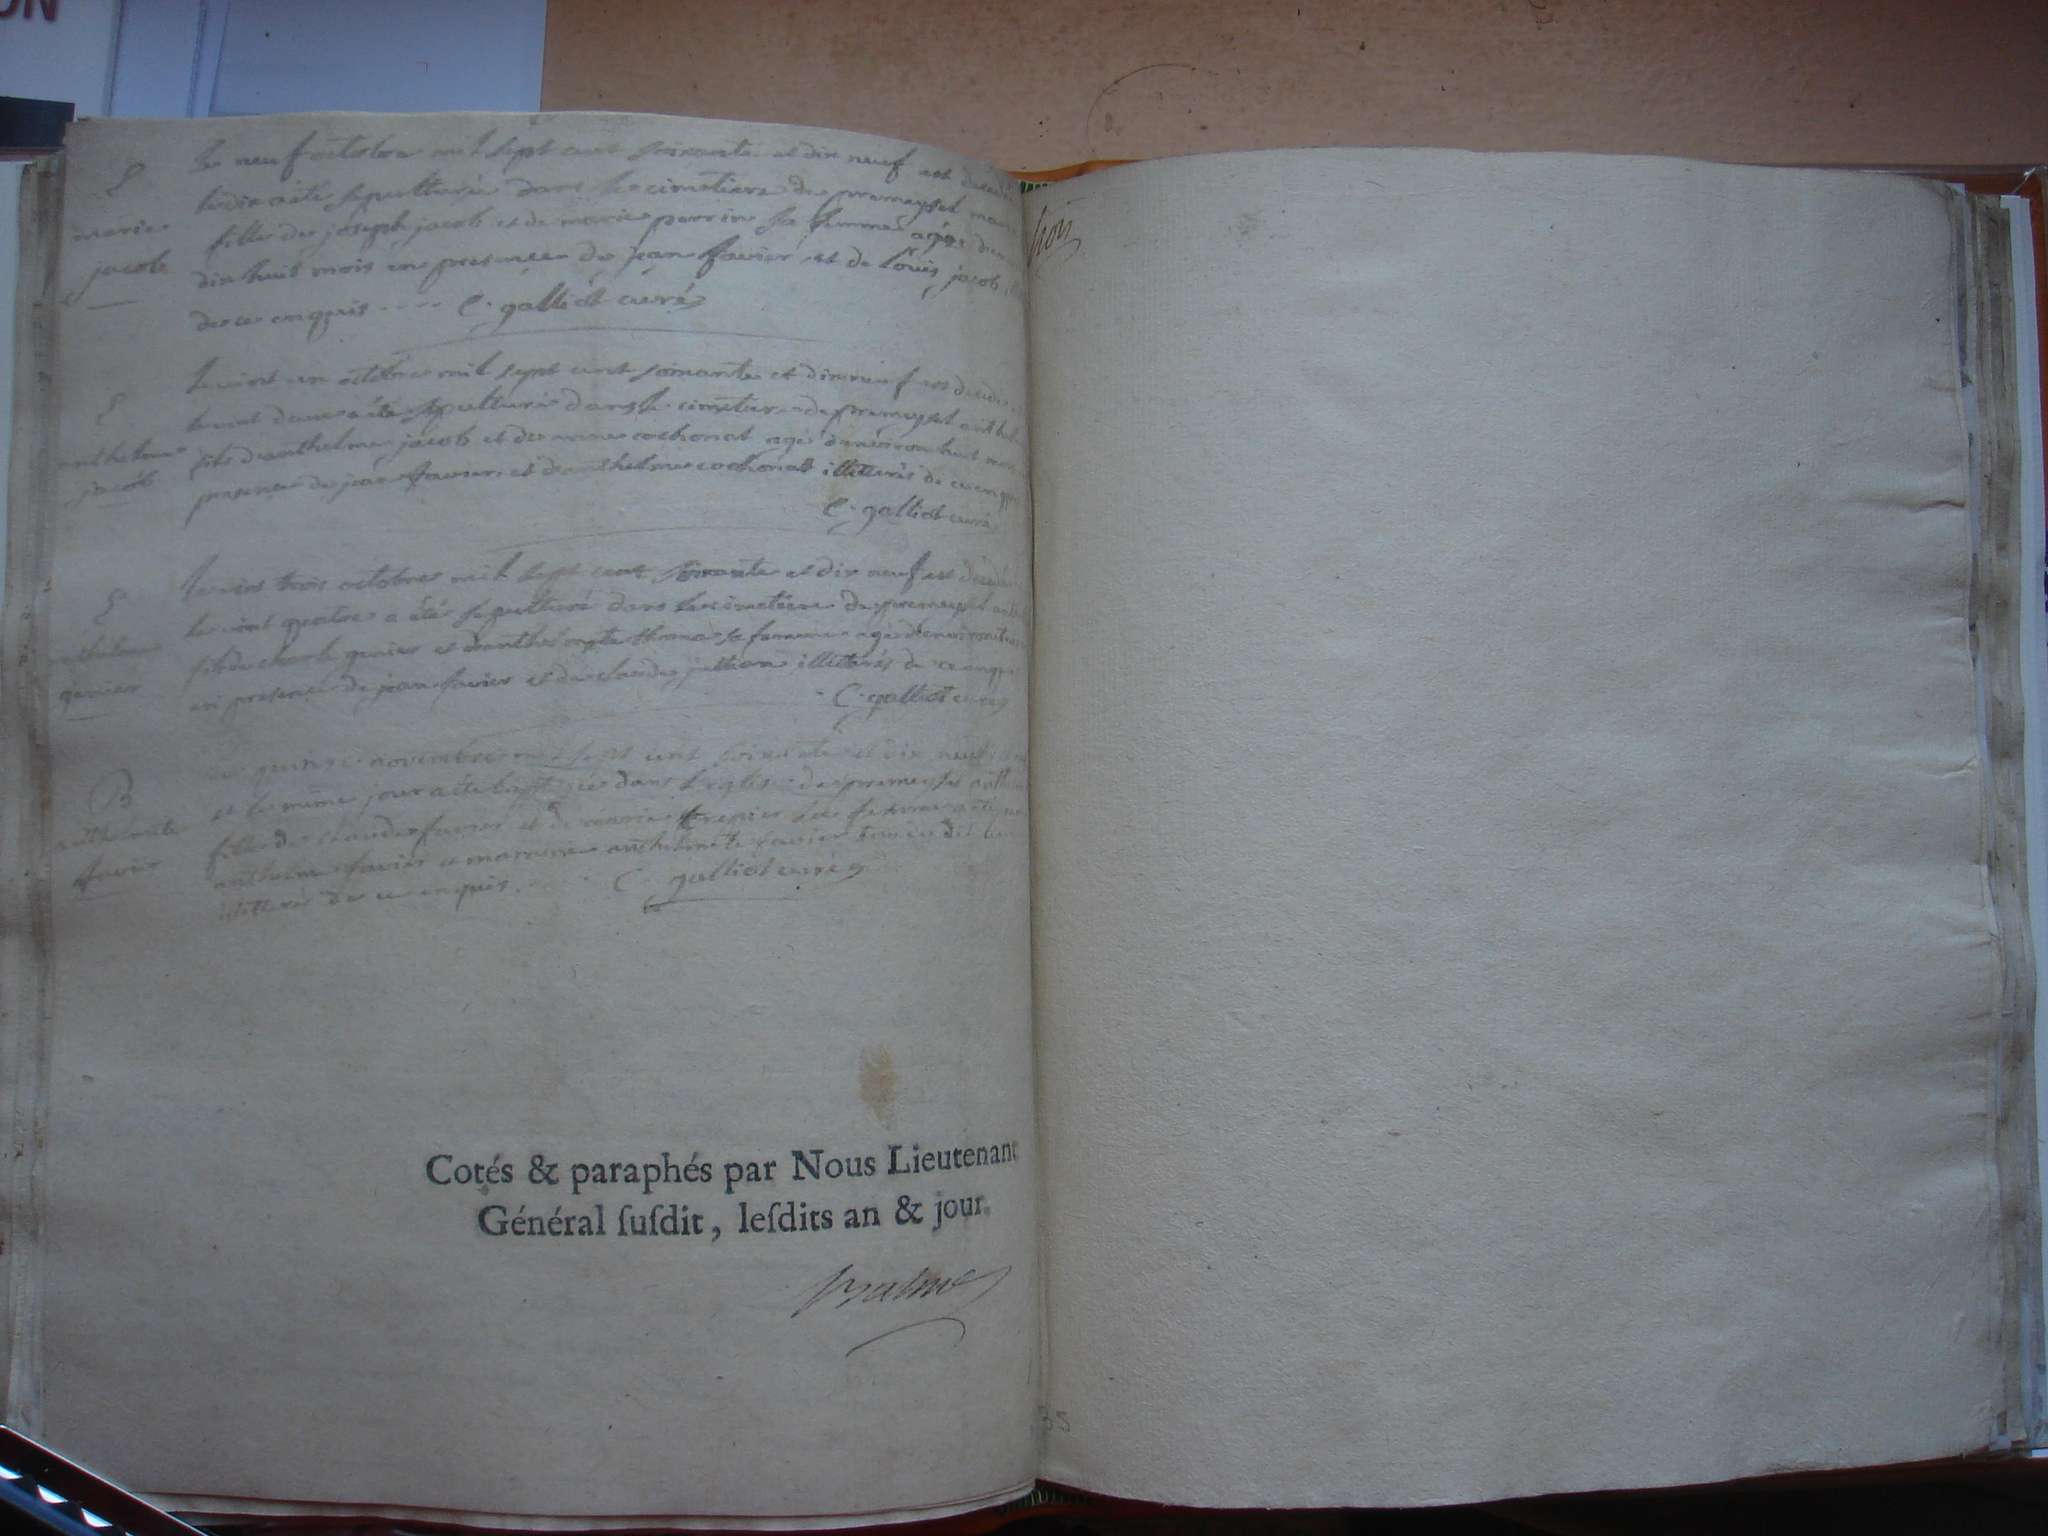 ON
S
marie
jacob
le neuf octobre mil sept cent soixante et dix neuf est decedée
le dix a été sepulturée dans le cimetiere de premeysel marie
fille de joseph jacob et de marie perrin sa femme agée
dix huit mois en presence de jean favier et de louis jacob
de ce enquis C. galliot curé
S
anthelme
jacob
le vint un octobre mil sept cent soixante et dix neuf est decedé
le vint deux a été sepulturé dans le cimetiere de premeysel
fils d'anthelme jacob et de cochonat agé d'environ huit mois
presence de jean favier et d'anthelme cochonat illiterés de ce enquis
C. galliot curé
S
anthelme
genier
le vint trois octobre mil sept cent soixante et dix neuf est decedé
le vint quatre a été sepulturé dans le cimetiere de premeysel
fils de charle genier et d'anthelmete thoma sa femme agé d'environ
en presence de jean favier et de claude jullion illiterés de ce enquis
C. galliot curé
B
anthelmete
favier
quinze novembre mil sept cent soixante et dix neuf
et le même jour a été baptisée dans l'eglise de premeysel
fille de claude favier et de marie sa femme
anthelme favier et marraine anthelmete favier tous du dit lieu
illiterés de ce enquis. C. galliot curé
Cotés & paraphés par Nous Lieutenant
Général ſuſdit, leſdits an & jour.
Balme
35